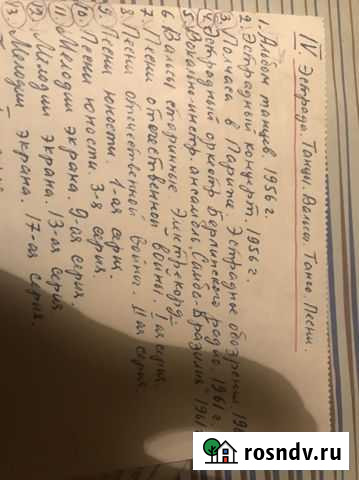 IV Эстрада. Танцы. Вальсы. Танго. Песни.
1. Альбом танцев. 1956 г.
2. Эстрадный концерт. 1956 г.
3. 2 часа в Париже. Эстрадное обозрение 19
4. Эстрадный оркестр Берлинского радио 1961 г.
5. Вокально-инстр. ансамбль. Самба. Бразилия 1961
6. Вальсы старинные. Электрокорд
7. Песни отечественной войны. I ая серия
8. Песни отечественной войны. II ая серия
9. Песни юности. 1-ая серия.
10. Песни юности. 3-я серия.
11. Мелодии экрана. 9-ая серия
12. Мелодии экрана. 13-ая серия
13. Мелодии экрана. 17-ая серия.
rosndv.ru